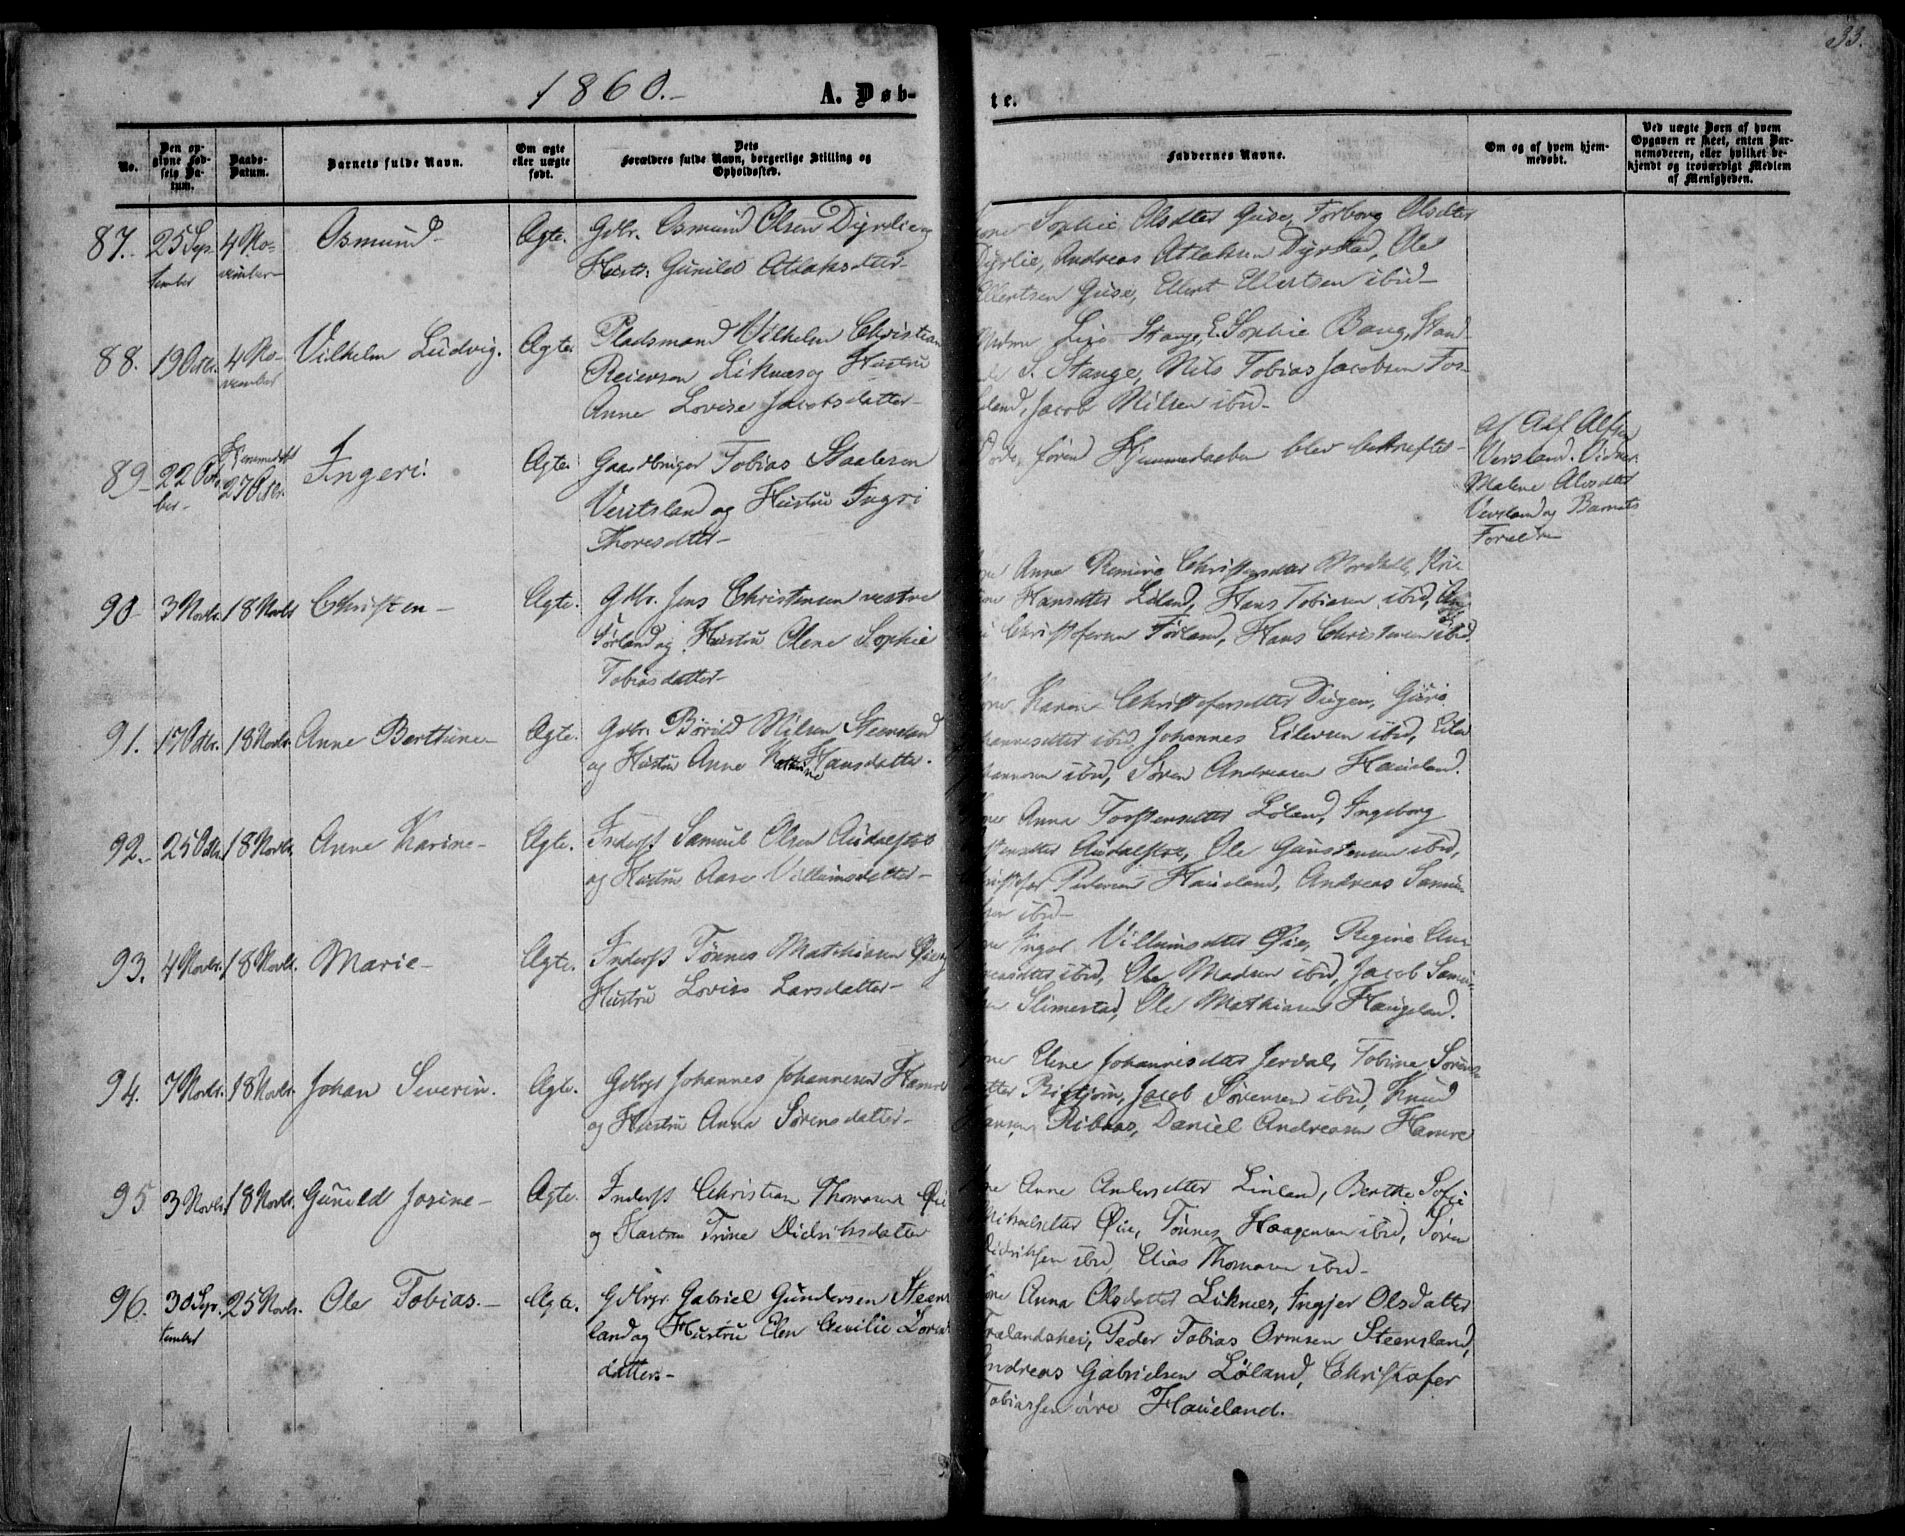 33.
1860.-
A. Døb-
te.
No.
Den op-
givne Fød-
sels Da-
tum.
Daabs-
Datum.
Barnets fulde Navn.
Om ægte
eller uægte
født.
Dets
Forældres fulde Navn, borgerlige Stilling og
Opholdssted.
Faddernes Navne.
Om og af hvem hjem-
medøbt.
Ved uægte Børn af hvem
Opgaven er skeet, enten Bar-
nemoderen, eller hvilket be-
kjendt og troværdigt Medlem
af Menigheden.
87. 25 Sep-
tember
4 No-
vember
Osmund
Ægte.
Gdbr. Osmund Olsen Dyrlie og
Hustr. Gunild Atlaksdatter
Sophie Olsdtter Guse, Torborg Olsdtter
Dyrlie, Andreas Atlaksen Dyrstad, Ole
Ellertsen Guse, Ellert Ellertsen ibid
88. 19 Octbr. 4 No-
vember
Vilhelm Ludvig.
Ægte.
Pladsmand Vilhelm Christian
Reiersen Liknes og Hustru
Anne Lovise Jacobsdatter
Stange, E. Sophie Bang,
S. Stange, Nils Tobias Jacobsen
Jacob Nilsen ibid
89 22 Octo-
ber
Hjemmedøbt
27 Octbr.
Ingeri.
Ægte.
Gaardbruger Tobias Staalesen
Veritsland og Hustru Ingri
Thoresdtter
Død, førend Hjemmedaaben blev bekræftet
Versland. Vidner
Malene Alvsdtter
Versland og Barnets
Forældre
90 3 Novbr. 18 Novbr.
Christen
Ægte.
Gdbr. Jens Christensen vestre
Førland og Hustru Olene Sophie
Tobiasdatter
Anne Christensdtter
Hansdtter Løland, Hans Tobiasen ibid,
Christofersen Førland, Hans Christensen ibid.
91. 17 Octbr. 18 Novbr.
Anne Berthine
Ægte.
Gdbr. Børild Nilsen Steensland
og Hustru Anne Kathrine Hansdatter.
Karen Christofersdtter Dugan, Gurie
Johannesdtter ibid, Johannes Eilevsen ibid, Eilev
Johannesen ibid, Søren Andreasen Haueland.
92. 25 Octbr. 18 Novbr.
Anne Karine
Ægte.
Inderst Samuel Olsen
og Hustru Aase Villumsdatter
Anna Torstensdtter Løland, Ingeborg
Ole Gunstensen ibid,
Christofer Pedersen Haueland, Andreas Samuel-
sen ibid
93. 4 Novbr. 18 Novbr.
Marie
Ægte.
Inderst Tønnes Mathiasen Øie og
Hustru Lovise Larsdatter
Inger Villumsdtter Øie, Regine An-
dreasdtter ibid, Ole Madsen ibid, Jacob Samuel-
sen Slimestad, Ole Mathiasen Haugeland.
94. 7 Novbr. 18 Novbr.
Johan Severin.
Ægte.
Gdbrgr Johannes Johannesen Hamre
og Hustru Anna Sørensdatter
Elene Johannesdtter Jerdal, Tobine Sørens-
datter Jacob Sørensen ibid, Knud
Hansen Ribaas, Daniel Andreasen Hamre
95 3 Novbr. 18 Novbr.
Gunild Josine
Ægte.
Inderst Christian Thomasen Øie
og Hustru Trine Didriksdatter
Anne Andersdtter Linland, Berthe Sofie
Mikkelsdtter Øie, Tønnes Haagensen ibid, Søren
Didriksen ibid, Elias Thomasen ibid
96. 30 Sep-
tember
25 Novbr.
Ole Tobias.
Ægte.
Gdbrgr. Gabriel Gundersen Steens
land og Hustru Elen Cecilie Lorents
datter
Anna Olsdatter Liknes, Ingjer Olsdatter
Trælandshei, Peder Tobias Ormsen Steensland,
Andreas Gabrielsen Løland, Christofer
Tobiassen øvre Haueland.